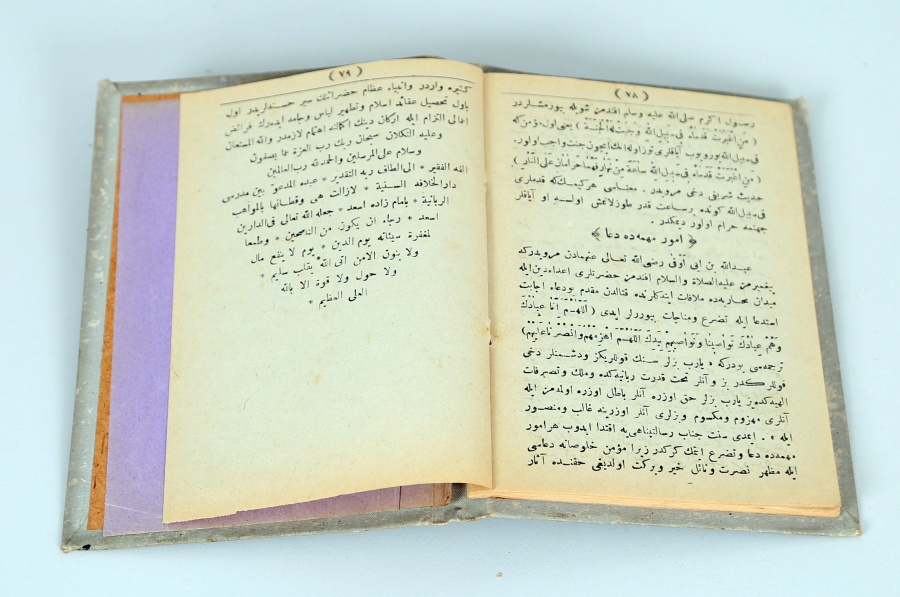 ( ٧٨ )
رسول اكرم صلى الله عليه وسلم افندمز شويله بيورمشلردر
( من اغبرت قدماه فى سبيل الله وجبت له الجنة ) يعنى اول مؤمن كه
فى سبيل الله يورويوب آياقلرى توزلوله انك ايچون جنت واجب اولور.
( من اغبرت قدماه فى سبيل الله ساعة من نهار فهما حرامان على النار )
حديث شريفى دخى مرويدر . معناسى هر كيمسه كه قدملرى
فى سبيل الله كوندزه بر ساعت قدر طوزلانمش اولسه او آياقلر
جهنمه حرام اولور ديمكدر .
﴿ امور مهمه ده دعا ﴾
عبدالله بن ابى اوفى رضى الله تعالى عنهمادن مرويدركه
پيغمبرمز عليه الصلاة والسلام افندمز حضرتلرى اعداء دين ايله
ميدان محاربه ده ملاقات ايتدكلرنده قتالدن مقدم بو دعاء اجابت
استدعا ايله تضرع ومناجات بيوررلر ايدى ( اللهم انا عبادك
وهم عبادك نواصينا ونواصيهم بيدك اللهم اهزمهم وانصرنا عليهم )
ترجمه سى بودركه • يارب بزلر سنك قوللريكز ودشمنلر دخى
قوللركدر بز و آنلر تحت قدرت ربانيه كده وملك وتصرفات
الهيه كده يز يارب بزلر حق اوزره آنلر باطل اوزره اولمدن ايله
آنلرى مهزوم ومكسوم وبزلرى آنلر اوزرينه غالب ومنصور
ايله • . ايمدى سنت جناب رسالتپناهى يه اقتدا ايدوب هر امور
مهمه ده دعا وتضرع ايتمك كركدر زيرا مؤمن خلوصانه دعاسى
ايله مظهر نصرت ونائل خير وبركت اولديغى حقنده آثار
( ٧٩ )
كثيره وارد وانبياء عظام حضراتنك سير حسنه لريدر اول
باول تحصيل عقائد اسلام وتطهير لباس وجامه ايدهرك فرائض
اعمالى التزام ايله اركان دينك اكمالنه اهتمام لازمدر والله المستعان
وعليه التكلان سبحان ربك رب العزة عما يصفون
وسلام على المرسلين والحمد لله رب العالمين
الفه الفقير * الى الطاف ربه القدير * عبده المدعو بين مدرسى
دار الخلافه السنية * لازالت هى وقطانها بالمواهب
الربانية * بامام زاده اسعد * جعله الله تعالى فى الدارين
اسعد * رجاء ان يكون من الناصحين * وطمعا
لمغفرة سيئاته يوم الدين * يوم لا ينفع مال
ولا بنون الا من اتى الله بقلب سليم *
ولا حول ولا قوة الا بالله
العلى العظيم *